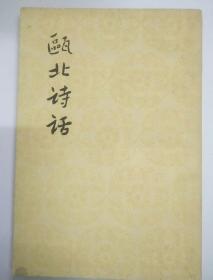 甌北诗话